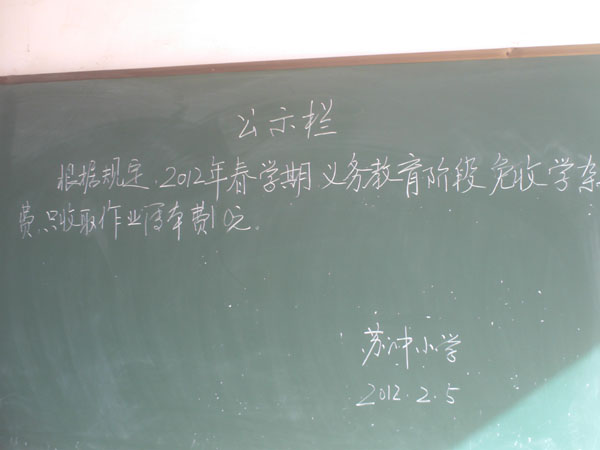 公示栏
根据规定.2012年春学期义务教育阶段免收学杂
费.只收取作业簿本费10元.
苏冲小学
2012.2.5